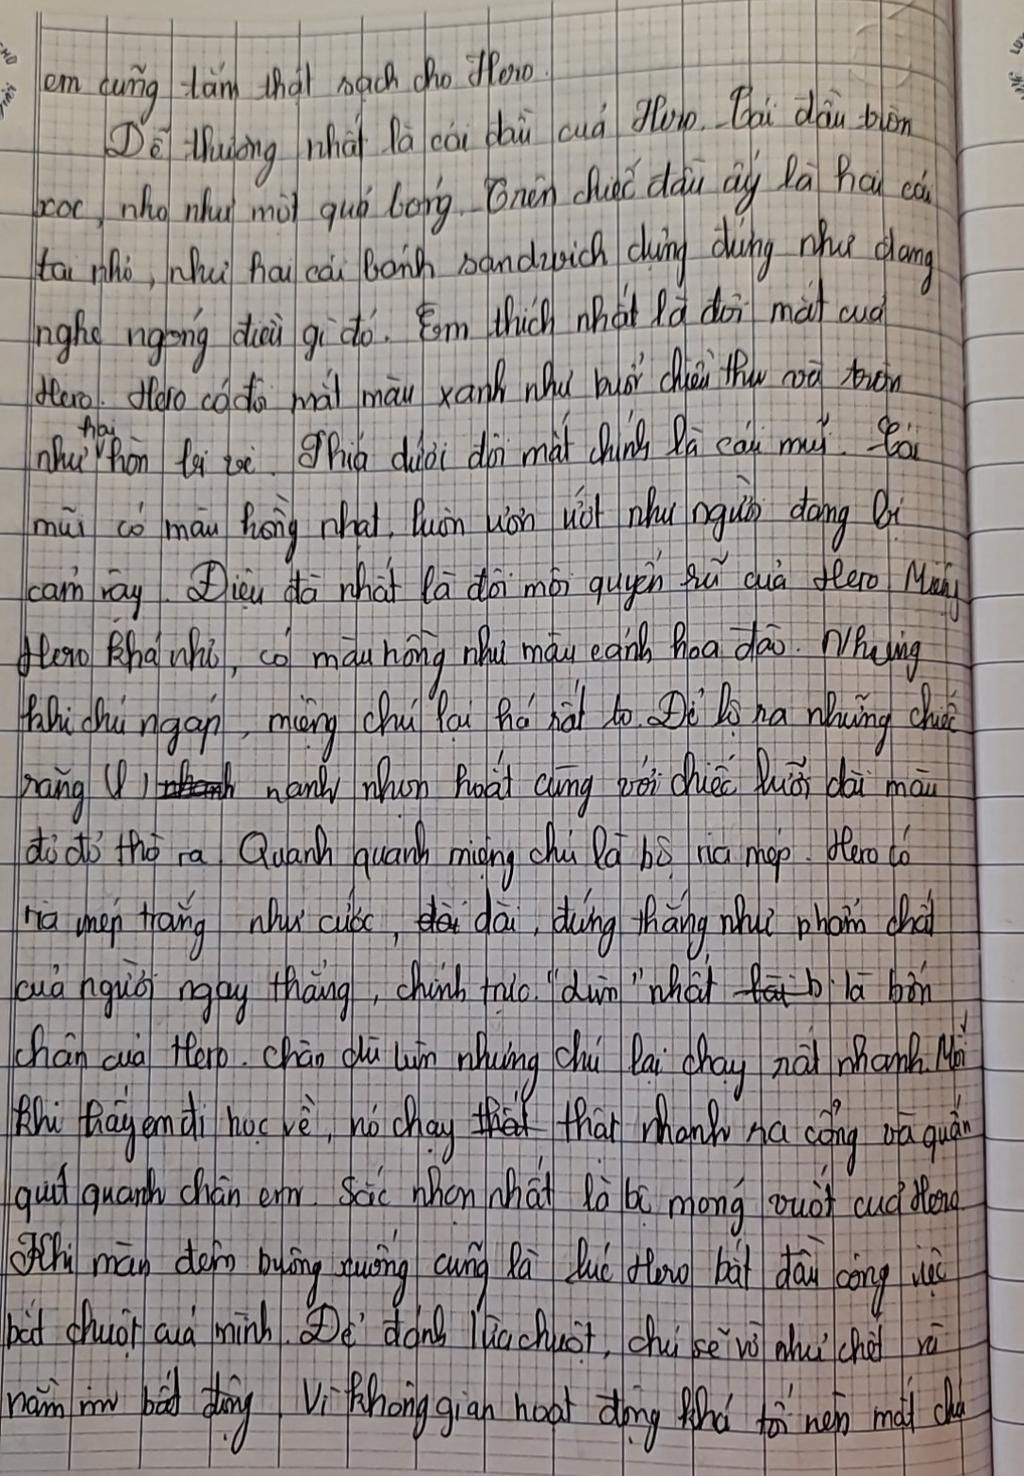 em cũng tắm thật sạch cho Hero.
Dễ thương nhất là cái đầu của Hero. Cái đầu tròn
xoe, nhỏ như một quả bóng. Trên chiếc đầu ấy là hai cái
tai nhỏ, như hai cái bánh sandwich dựng đứng như đang
nghe ngóng điều gì đó. Em thích nhất là đôi mắt của
Hero. Hero có đôi mắt màu xanh như buổi chiều thu và tròn
như hai hòn bi ve. Phía dưới đôi mắt chính là cái mũi. Cái
mũi có màu hồng nhạt, luôn ươn ướt như người đang bị
cảm vậy. Điệu đà nhất là đôi môi quyến rũ của Hero. Miệng
Hero khá nhỏ, có màu hồng như màu cánh hoa đào. Nhưng
khi chú ngáp, miệng chú lại há rất to. Để lộ ra những chiếc
răng nanh nhọn hoắt cùng với chiếc lưỡi dài màu
đo đỏ thò ra. Quanh quanh miệng chú là bộ ria mép. Hero có
ria mép trắng như cước, dài, đứng thẳng như phẩm chất
của người ngay thẳng, chính trực. "lùn" nhất là bốn
chân của Hero. Chân dù lùn nhưng chú lại chạy rất nhanh. Mỗi
khi thấy em đi học về, nó chạy thật nhanh ra cổng và quấn
quýt quanh chân em. Sắc nhọn nhất là bộ móng vuốt của Hero
Khi màn đêm buông xuống cũng là lúc Hero bắt đầu công việc
bắt chuột của mình. Để đánh lừa chuột, chú sẽ vờ như chết và
nằm im bất động. Vì không gian hoạt động khá tối nên mắt chú